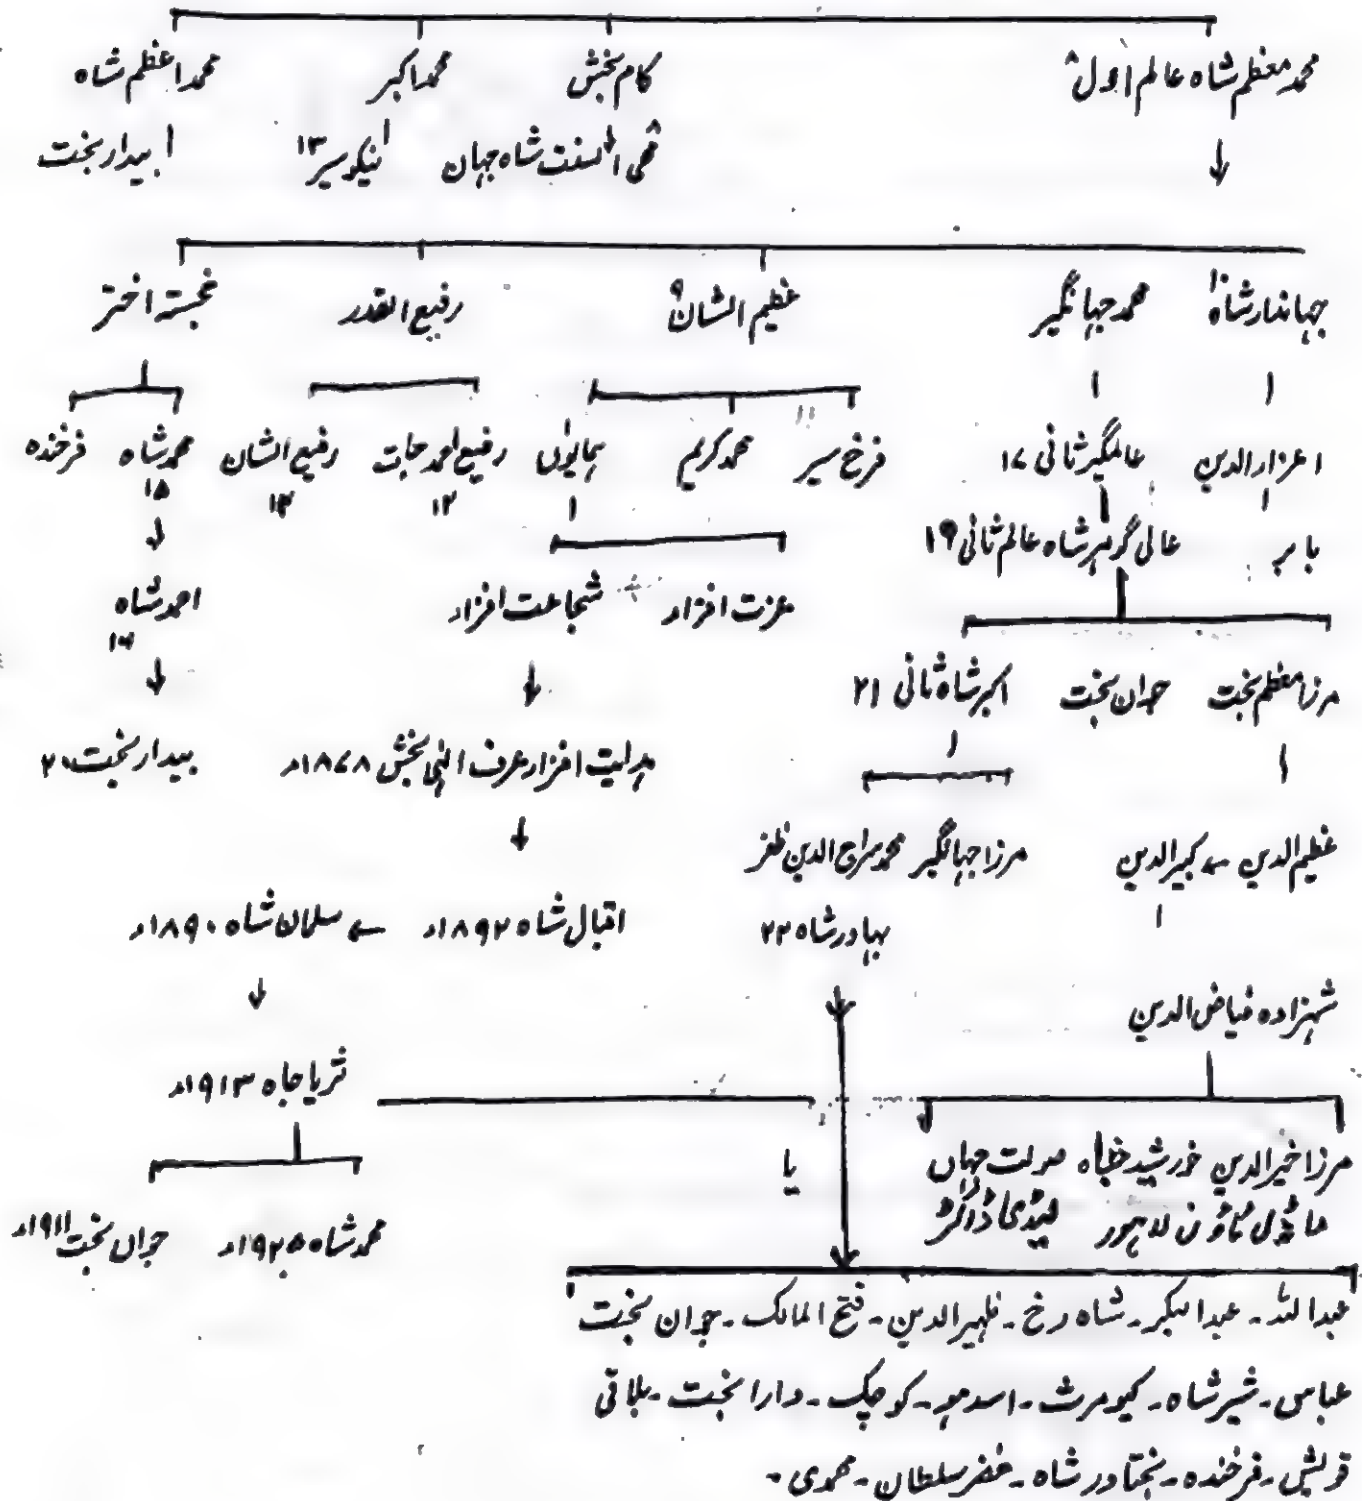 محمد معظم شاہ عالم اول ۸ کام بخش محمد اکبر محمد اعظم شاہ
محی السنت شاہ جہان نیکو سیر ۱۳ بیدار بخت
جہاندار شاہ ۱۰ محمد جہانگیر عظیم الشان ۹ رفیع القدر خجستہ اختر
اعزار الدین عالمگیر ثانی ۱۷ فرخ سیر ۱۱ محمد کریم ہمایوں رفیع احمد جات ۱۲ رفیع الشان ۱۴ محمد شاہ ۱۵ فرخندہ
بابر عالی گوہر شاہ عالم ثانی ۱۹
عزت افزاد شجاعت افزاد احمد شاہ ۱۶
مرزا معظم بخت جوان بخت اکبر شاہ ثانی ۲۱
ہدایت افزاد عرف الٰہی بخش ۱۸۷۸ء بیدار بخت ۲۰
عظیم الدین کبیر الدین مرزا جہانگیر محمد سراج الدین ظفر
بہادر شاہ ۲۲ اقبال شاہ ۱۸۹۲ء سلمان شاہ ۱۸۹۰ء
شہزادہ فیاض الدین
ثریا جاہ ۱۹۱۳ء
مرزا خیر الدین خورشید جاہ صولت جہاں یا
ماڈل ٹاؤن لاہور لیڈی ڈاکٹر
محمد شاہ ۱۹۲۵ء جواں بخت ۱۹۱۱ء
عبداللہ ۔ عبدالبکر ۔ شاہ رخ ۔ ظہیر الدین ۔ فتح المالک ۔ جوان بخت
عباس ۔ شیر شاہ ۔ کیومرث ۔ اسد ۔ کوچک ۔ دارا بخت ۔ بلاقی
قریشی ۔ فرخندہ ۔ بختاور شاہ ۔ خضر سلطان ۔ محمدی ۔